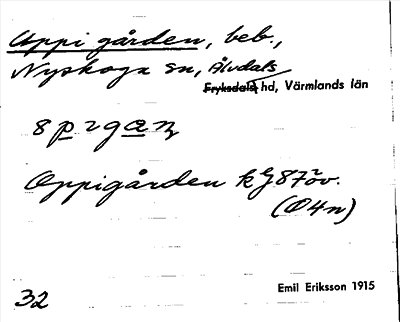 Uppi gården, beb.,
Nyskoga sn, Älvdals
Fryksdals hd, Värmlands län
Oppigården
(O4n)
32
Emil Eriksson 1915